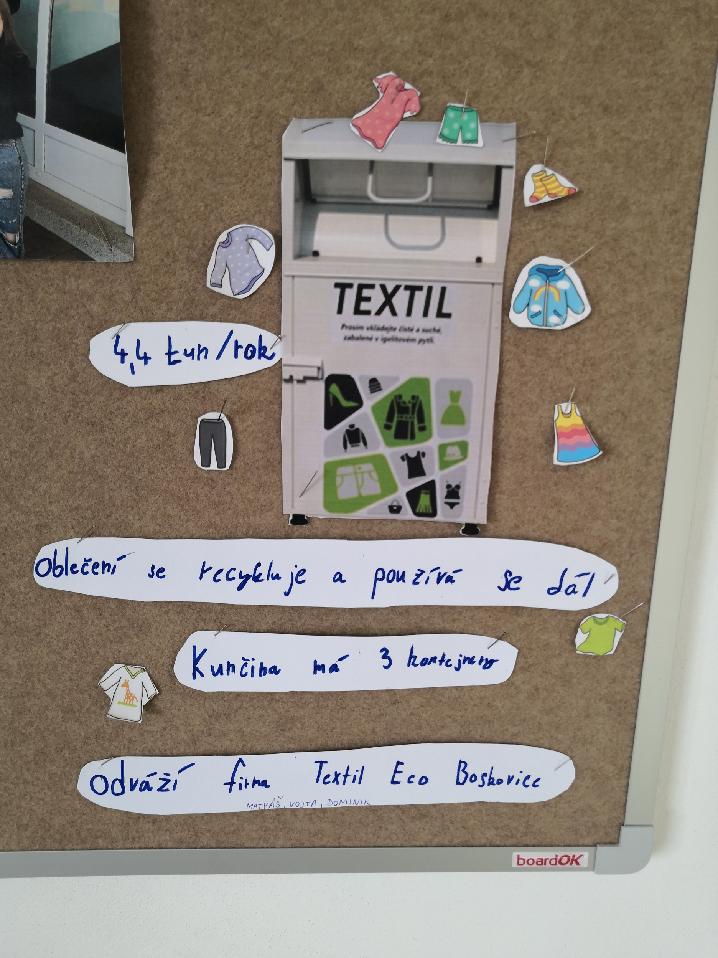 TEXTIL
Prosím vkládejte čisté a suché,
zabalené v igelitovém pytli.
4,4 tun/rok
Oblečení se recykluje a používá se dál
Kunčina má 3 kontejnery
Odváží firma Textil Eco Boskovice
MATYÁŠ, VOJTA, DOMINIK
boardOK